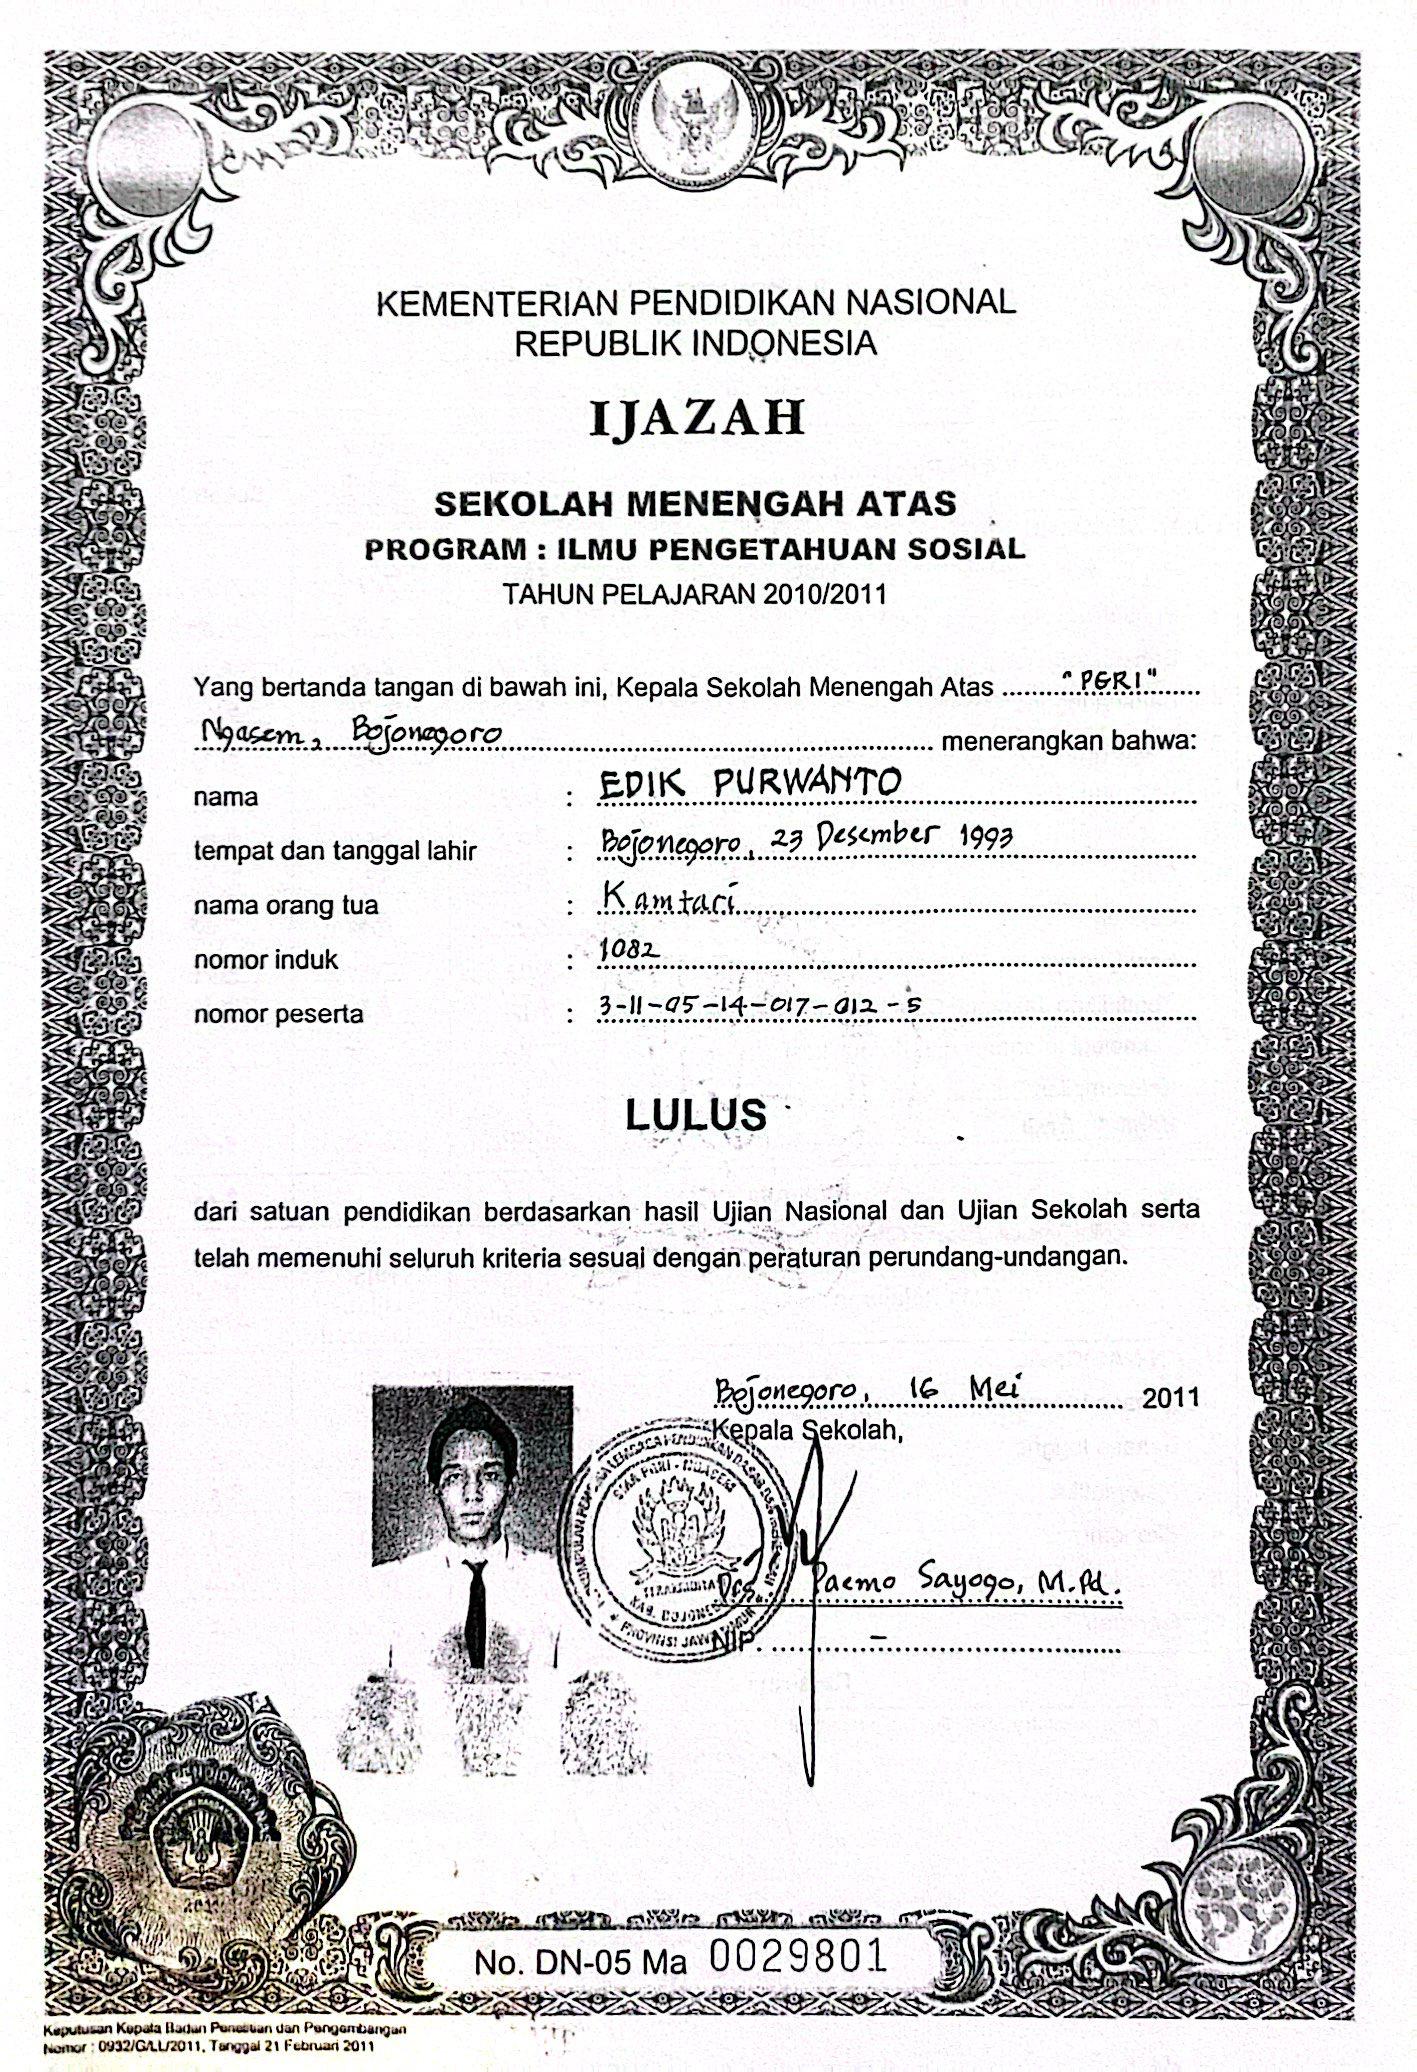 KEMENTERIAN PENDIDIKAN NASIONAL
REPUBLIK INDONESIA
IJAZAH
SEKOLAH MENENGAH ATAS
PROGRAM : ILMU PENGETAHUAN SOSIAL
TAHUN PELAJARAN 2010/2011
Yang bertanda tangan di bawah ini, Kepala Sekolah Menengah Atas "PGRI"
Ngasem, Bojonegoro menerangkan bahwa:
nama : EDIK PURWANTO
tempat dan tanggal lahir : Bojonegoro, 23 Desember 1993
nama orang tua : Kamtari
nomor induk : 1082
nomor peserta : 3-11-05-14-017-012-5
LULUS
dari satuan pendidikan berdasarkan hasil Ujian Nasional dan Ujian Sekolah serta
telah memenuhi seluruh kriteria sesuai dengan peraturan perundang-undangan.
Bojonegoro, 16 Mei 2011
Kepala Sekolah,
SMA PGRI - NGASEM
KAB. BOJONEGORO
PROVINSI JAWA TIMUR
Drs. Paemo Sayogo, M.Pd.
NIP. -
No. DN-05 Ma 0029801
Keputusan Kepala Badan Penelitian dan Pengembangan
Nomor : 0932/G/LL/2011, Tanggal 21 Februari 2011